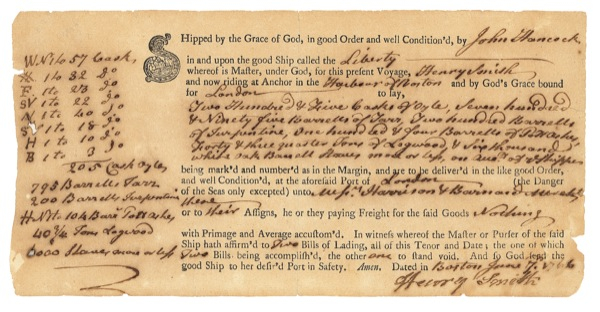 SHipped by the Grace of God, in good Order and well Condition'd, by John Hancock
in and upon the good Ship called the Liberty
whereof is Master, under God, for this present Voyage, Henry Smith
and now riding at Anchor in the Harbour of Boston and by God's Grace bound
for London to lay,
Two Hundred & Five Casks of Oyle, Seven hundred
& Ninety five Barrells of Tarr, Two hundred Barrells
of Turpentine, One hundred & four Barrells of Pott Ashes,
Forty & three quarter Tons of Logwood, & Six thousand
White Oak Barrell Staves more or less, on & Shippers
being mark'd and number'd as in the Margin, and are to be deliver'd in the like good Order,
and well Condition'd, at the aforesaid Port of London (the Danger
of the Seas only excepted) unto Messrs. Harrison & Barnard Merchts
there
or to their Assigns, he or they paying Freight for the said Goods Nothing
with Primage and Average accustom'd. In witness whereof the Master or Purser of the said
Ship hath affirm'd to Two Bills of Lading, all of this Tenor and Date; the one of which
Two Bills being accomplish'd, the other one to stand void. And so God send the
good Ship to her desir'd Port in Safety. Amen. Dated in Boston June
Henry Smith
W No. 1 to 57 Cask
1 to 32 do
1 to 23 do
SY 1 to 22 do
N 1 to 40 do
1 to 18 do
H 1 to 10 do
B 1 to 3 do
205 Cask Oyle
795 Barrells Tarr
200 Barrells Turpentine
H No. 1 to 104 Barr. Pott Ashes
40 3/4 Tons Logwood
6000 Staves more or less